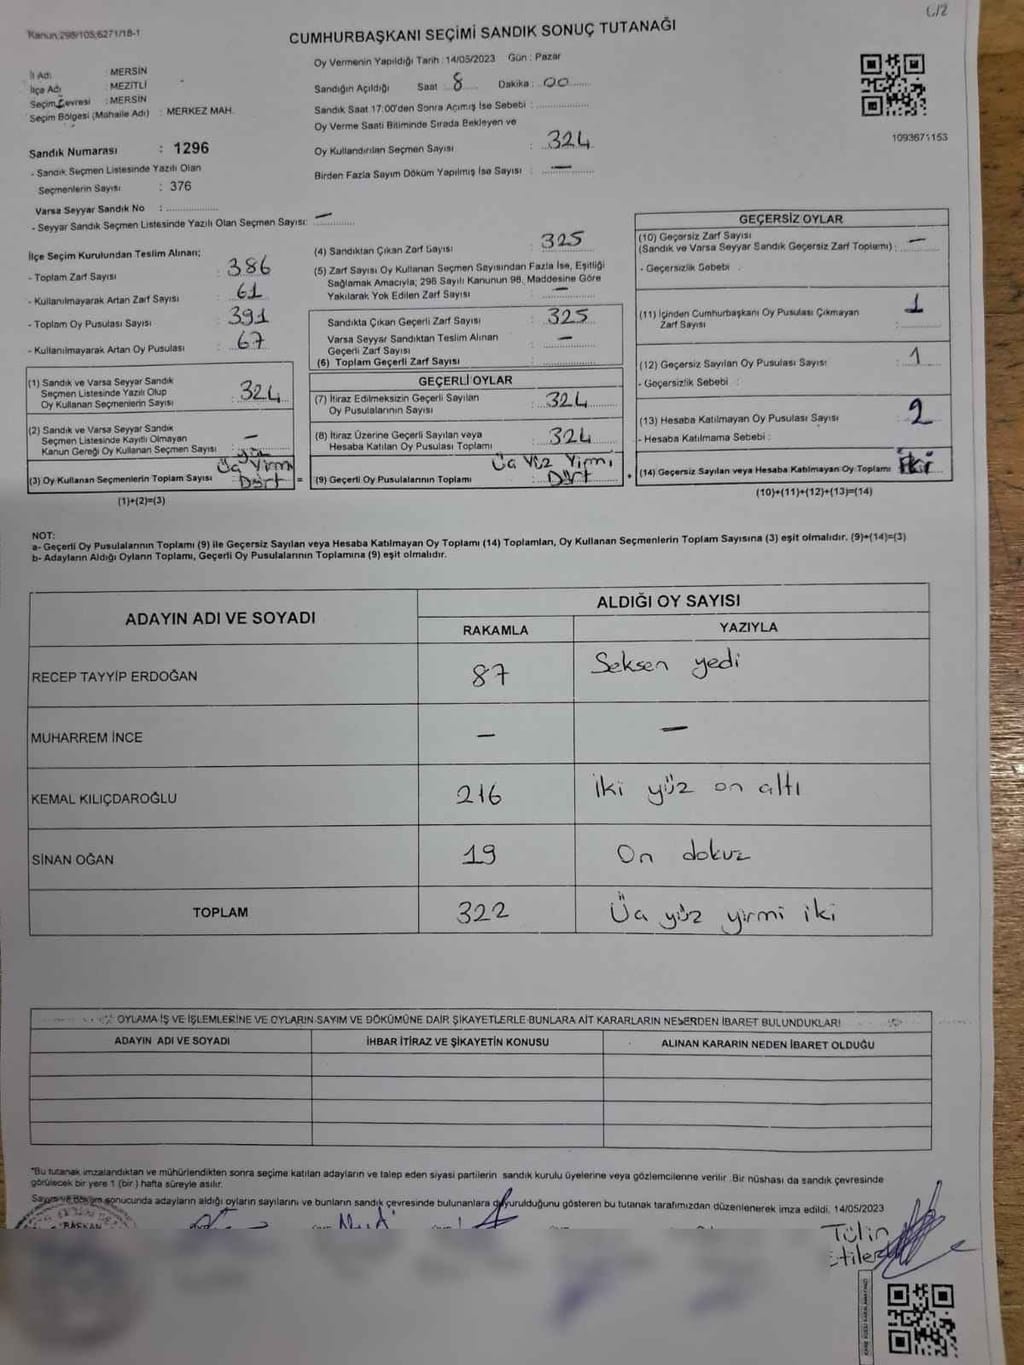 Kanun:298/105;6271/18-1
6/2
CUMHURBAŞKANI SEÇİMİ SANDIK SONUÇ TUTANAĞI
İl Adı : MERSİN
İlçe Adı : MEZİTLİ
Seçim Çevresi : MERSİN
Seçim Bölgesi (Mahalle Adı) : MERKEZ MAH.
Sandık Numarası : 1296
- Sandık Seçmen Listesinde Yazılı Olan
Seçmenlerin Sayısı : 376
Varsa Seyyar Sandık No : ...............
- Seyyar Sandık Seçmen Listesinde Yazılı Olan Seçmen Sayısı: —
Oy Vermenin Yapıldığı Tarih : 14/05/2023 Gün : Pazar
Sandığın Açıldığı Saat 8 Dakika : 00
Sandık Saat 17:00'den Sonra Açımış İse Sebebi : ...............
Oy Verme Saati Bitiminde Sırada Bekleyen ve
Oy Kullandırılan Seçmen Sayısı : 324
Birden Fazla Sayım Döküm Yapılmış İse Sayısı : —
1093671153
İlçe Seçim Kurulundan Teslim Alınan;
- Toplam Zarf Sayısı : 386
- Kullanılmayarak Artan Zarf Sayısı : 61
- Toplam Oy Pusulası Sayısı : 391
- Kullanılmayarak Artan Oy Pusulası : 67
(1) Sandık ve Varsa Seyyar Sandık
Seçmen Listesinde Yazılı Olup
Oy Kullanan Seçmenlerin Sayısı : 324
(2) Sandık ve Varsa Seyyar Sandık
Seçmen Listesinde Kayıtlı Olmayan
Kanun Gereği Oy Kullanan Seçmen Sayısı : —
(3) Oy Kullanan Seçmenlerin Toplam Sayısı : Üç yüz Yirmi Dört =
(1)+(2)=(3)
(4) Sandıktan Çıkan Zarf Sayısı : 325
(5) Zarf Sayısı Oy Kullanan Seçmen Sayısından Fazla İse, Eşitliği
Sağlamak Amacıyla; 298 Sayılı Kanunun 98. Maddesine Göre
Yakılarak Yok Edilen Zarf Sayısı : —
Sandıkta Çıkan Geçerli Zarf Sayısı : 325
Varsa Seyyar Sandıktan Teslim Alınan
Geçerli Zarf Sayısı : —
(6) Toplam Geçerli Zarf Sayısı : ...............
GEÇERLİ OYLAR
(7) İtiraz Edilmeksizin Geçerli Sayılan
Oy Pusulalarının Sayısı : 324
(8) İtiraz Üzerine Geçerli Sayılan veya
Hesaba Katılan Oy Pusulası Toplamı : 324
(9) Geçerli Oy Pusulalarının Toplamı : Üç Yüz Yirmi Dört +
GEÇERSİZ OYLAR
(10) Geçersiz Zarf Sayısı
(Sandık ve Varsa Seyyar Sandık Geçersiz Zarf Toplamı) : —
- Geçersizlik Sebebi :
(11) İçinden Cumhurbaşkanı Oy Pusulası Çıkmayan
Zarf Sayısı : 1
(12) Geçersiz Sayılan Oy Pusulası Sayısı : 1
- Geçersizlik Sebebi :
(13) Hesaba Katılmayan Oy Pusulası Sayısı : 2
- Hesaba Katılmama Sebebi :
(14) Geçersiz Sayılan veya Hesaba Katılmayan Oy Toplamı : İki
(10)+(11)+(12)+(13)=(14)
NOT:
a- Geçerli Oy Pusulalarının Toplamı (9) ile Geçersiz Sayılan veya Hesaba Katılmayan Oy Toplamı (14) Toplamları, Oy Kullanan Seçmenlerin Toplam Sayısına (3) eşit olmalıdır. (9)+(14)=(3)
b- Adayların Aldığı Oyların Toplamı, Geçerli Oy Pusulalarının Toplamına (9) eşit olmalıdır.
ADAYIN ADI VE SOYADI
ALDIĞI OY SAYISI
RAKAMLA YAZIYLA
RECEP TAYYİP ERDOĞAN 87 Seksen yedi
MUHARREM İNCE — —
KEMAL KILIÇDAROĞLU 216 İki yüz on altı
SİNAN OĞAN 19 On dokuz
TOPLAM 322 Üç yüz yirmi iki
OYLAMA İŞ VE İŞLEMLERİNE VE OYLARIN SAYIM VE DÖKÜMÜNE DAİR ŞİKAYETLERLE BUNLARA AİT KARARLARIN NELERDEN İBARET BULUNDUKLARI
ADAYIN ADI VE SOYADI İHBAR İTİRAZ VE ŞİKAYETİN KONUSU ALINAN KARARIN NEDEN İBARET OLDUĞU
"Bu tutanak imzalandıktan ve mühürlendikten sonra seçime katılan adayların ve talep eden siyasi partilerin sandık kurulu üyelerine veya gözlemcilerine verilir .Bir nüshası da sandık çevresinde
görülecek bir yere 1 (bir ) hafta süreyle asılır.
Sayım ve döküm sonucunda adayların aldığı oyların sayılarını ve bunların sandık çevresinde bulunanlara duyurulduğunu gösteren bu tutanak tarafımızdan düzenlenerek imza edildi. 14/05/2023
BAŞKAN
Tülin